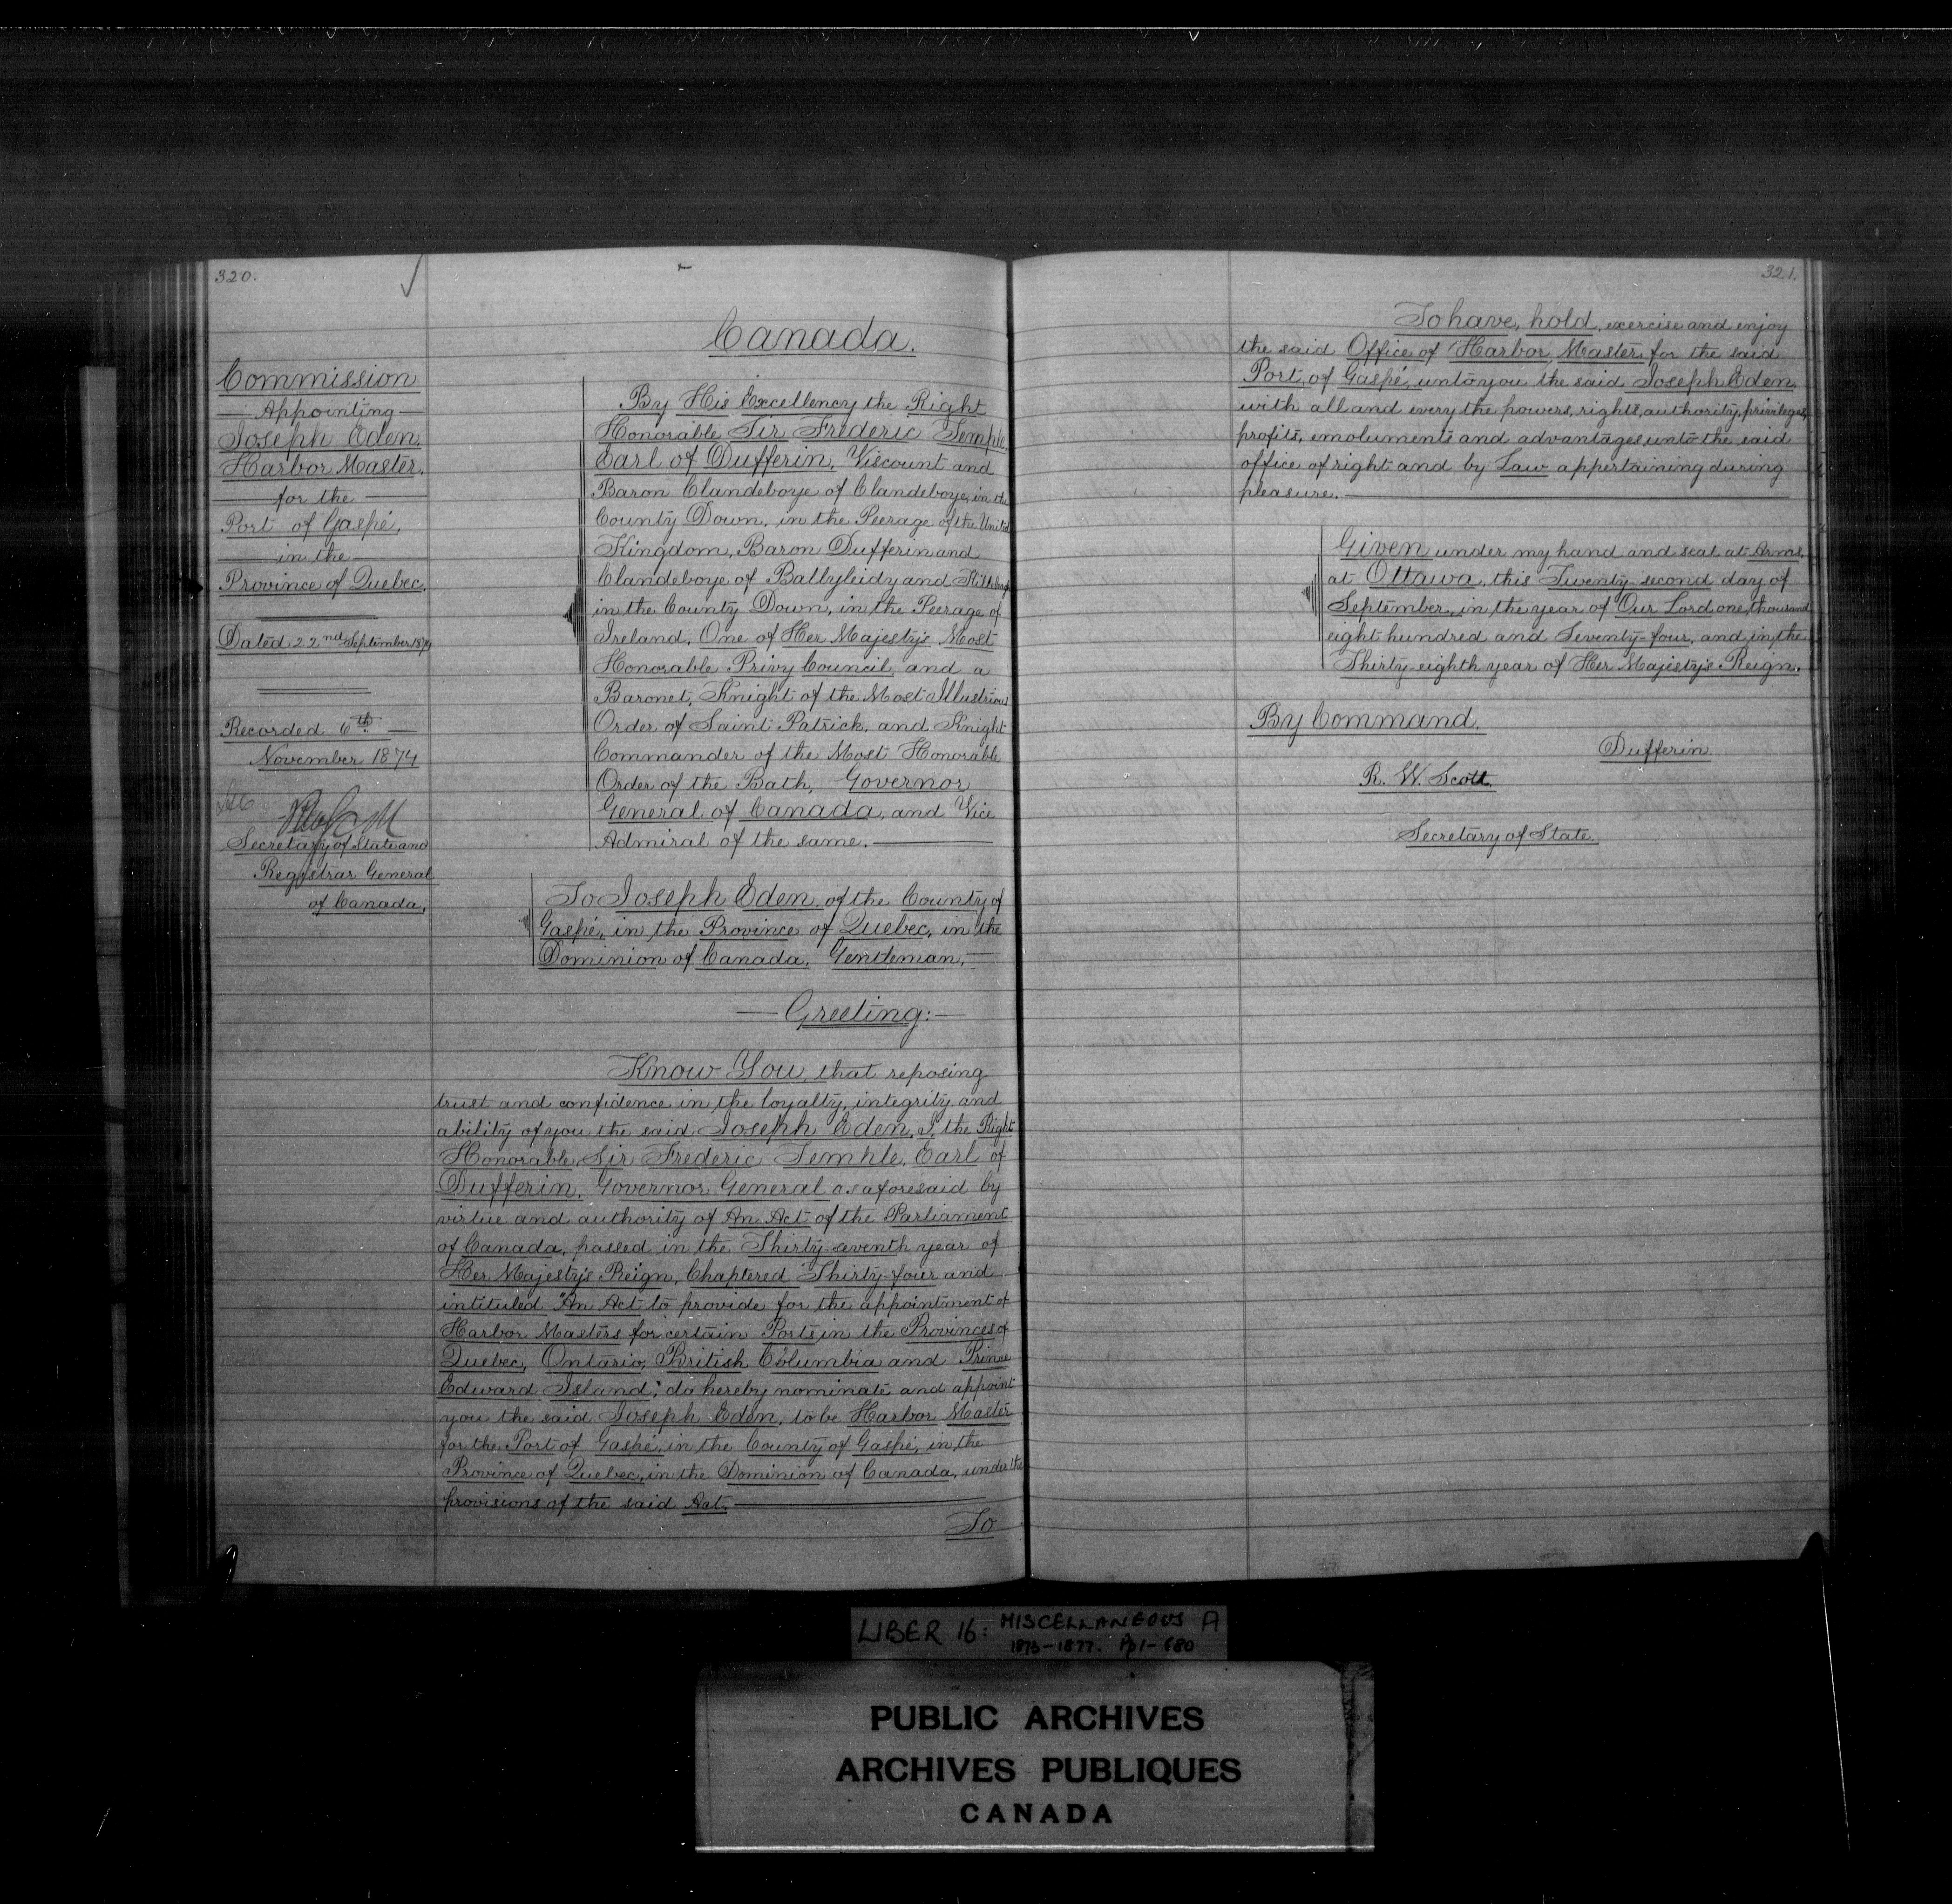 320.
Commission
Appointing
Joseph Eden,
Harbor Master,
for the
Port of Gaspé,
in the
Province of Quebec.
Dated 22nd September 1874
Recorded 6th
November 1874
Secretary of State and
Registrar General
of Canada,
Canada.
By His Excellency the Right
Honorable Sir Frederic Temple
Earl of Dufferin, Viscount and
Baron Clandeboye of Clandeboye, in the
County Down, in the Peerage of the United
Kingdom, Baron Dufferin and
Clandeboye of Ballyleidy and
in the County Down, in the Peerage of
Ireland, One of Her Majesty's Most
Honorable Privy Council, and a
Baronet, Knight of the Most Illustrious
Order of Saint Patrick, and Knight
Commander of the Most Honorable
Order of the Bath, Governor
General of Canada, and Vice
Admiral of the same.
To Joseph Eden, of the County of
Gaspé, in the Province of Quebec, in the
Dominion of Canada, Gentleman,
Greeting:
Know You, that reposing
trust and confidence in the loyalty, integrity and
ability of you the said Joseph Eden, I, the Right
Honorable Sir Frederic Temple, Earl of
Dufferin, Governor General as aforesaid by
virtue and authority of An Act of the Parliament
of Canada, passed in the Thirty-seventh year of
Her Majesty's Reign, Chaptered Thirty-four and
intituled "An Act to provide for the appointment of
Harbor Masters for certain Ports in the Provinces of
Quebec, Ontario, British Columbia and Prince
Edward Island," do hereby nominate and appoint
you the said Joseph Eden, to be Harbor Master
for the Port of Gaspé, in the County of Gaspé, in the
Province of Quebec, in the Dominion of Canada, under the
provisions of the said Act.
To
321.
To have, hold, exercise and enjoy
the said Office of Harbor Master for the said
Port, of Gaspé, unto you the said Joseph Eden,
with all and every the powers, rights, authority, privileges,
profits, emoluments and advantages unto the said
office of right and by Law appertaining during
pleasure.
Given under my hand and seal at Arms,
at Ottawa, this Twenty-second day of
September, in the year of Our Lord one thousand
eight hundred and Seventy-four, and in the
Thirty-eighth year of Her Majesty's Reign.
By Command.
Dufferin
R. W. Scott
Secretary of State.
LIBER 16: MISCELLANEOUS A
1873-1877. Pp 1-680
PUBLIC ARCHIVES
ARCHIVES PUBLIQUES
CANADA